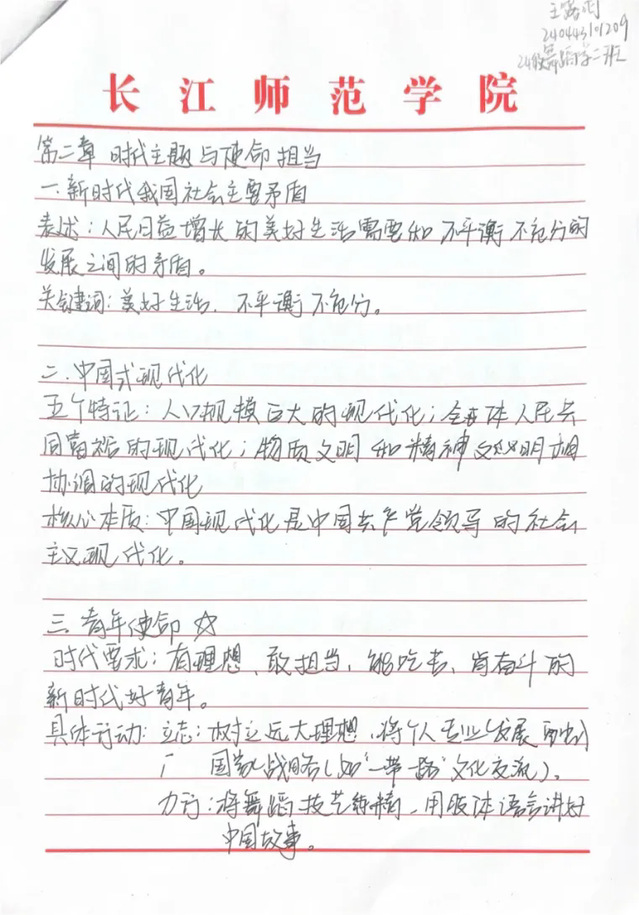 王露雨
24044310209
24级舞蹈学二班
长江师范学院
第二章 时代主题与使命担当
一.新时代我国社会主要矛盾
表述:人民日益增长的美好生活需要和不平衡不充分的
发展之间的矛盾。
关键词:美好生活、不平衡不充分。
二.中国式现代化
五个特证:人口规模巨大的现代化;全体人民共
同富裕的现代化;物质文明和精神文明相
协调的现代化
核心本质:中国现代化是中国共产党领导的社会
主义现代化。
三.青年使命☆
时代要求:有理想、敢担当、能吃苦、肯奋斗的
新时代好青年。
具体行动:立志:树立远大理想,将个人专业(发展
国家战略(如"一带一路"文化交流)。
力行:将舞蹈技艺练精,用肢体语言讲好
中国故事。